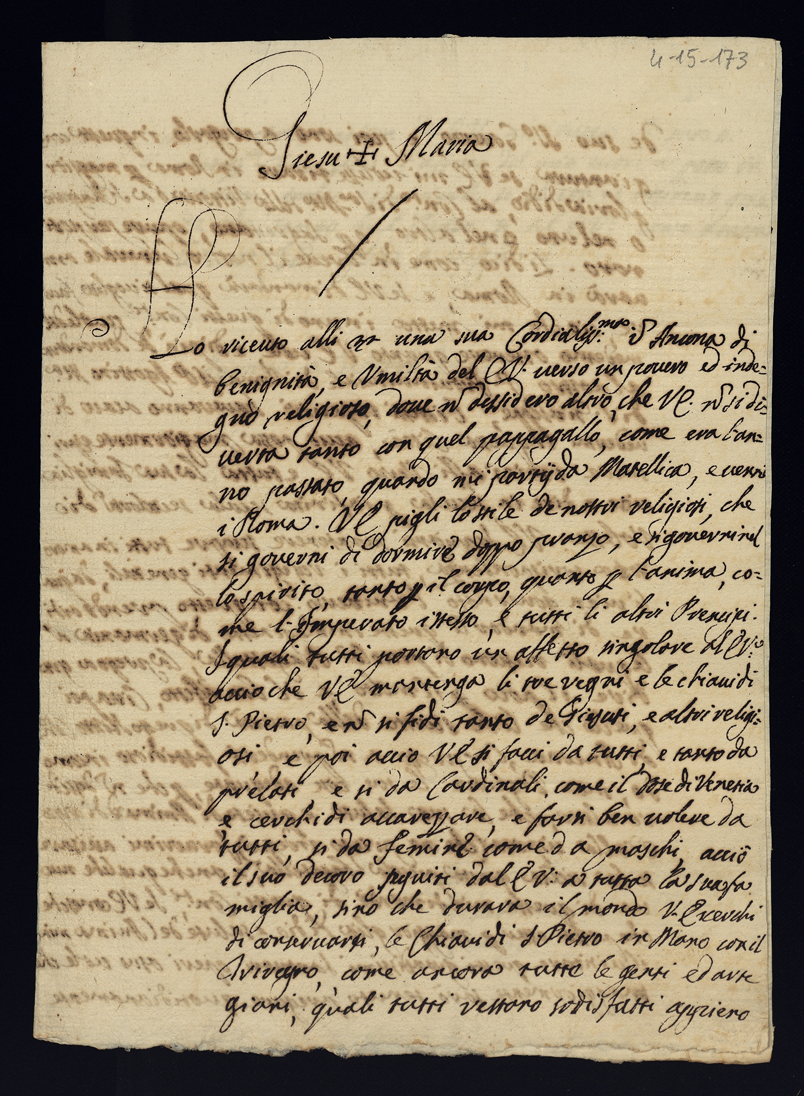 4-15-173
Giesu + Maria
Ho ricevto alli una sua Cordialiss.ma i Ancona di
benignità, e Vmiltà del V: verso un povero ed inde=
gno religioso, dove ñ dessidero altro, che VE. ñ si di=
verta tanto con quel pappagallo, come era l'an=
no passato, quando mi partij da Matellica, e venni
i Roma. VE pigli lo stile de nostri religiosi, che
si governi di dormire doppo pranzo, e si governi nel
lo spirito, tanto p il corpo, quanto p l'anima, co=
me l'Imperato istesso, e tutti li altri Prencipi.
I quali tutti portono un affetto singolare al V.
accio che VE mantenga li sue regni e le chiaui di
S. Pietro, e ñ si fidi tanto de Giesuti, e altri religi=
osi e poi accio VE si facci da tutti, e tanto da
prelati e si da Cardinali, come il Dose di Venetia
e cerchi di accarezzare, e farsi ben volere da
tutti, si da femine come da maschi, acciò
il suo decoro seguiti dal V: a tutta la sua fa
miglia, sino che durara il mondo V. E cerchi
di conservarsi, le Chiaui di S Pietro in Mano con il
, come ancora tutte le genti ed arte
giani, quali tutti restono sodisfatti appieno